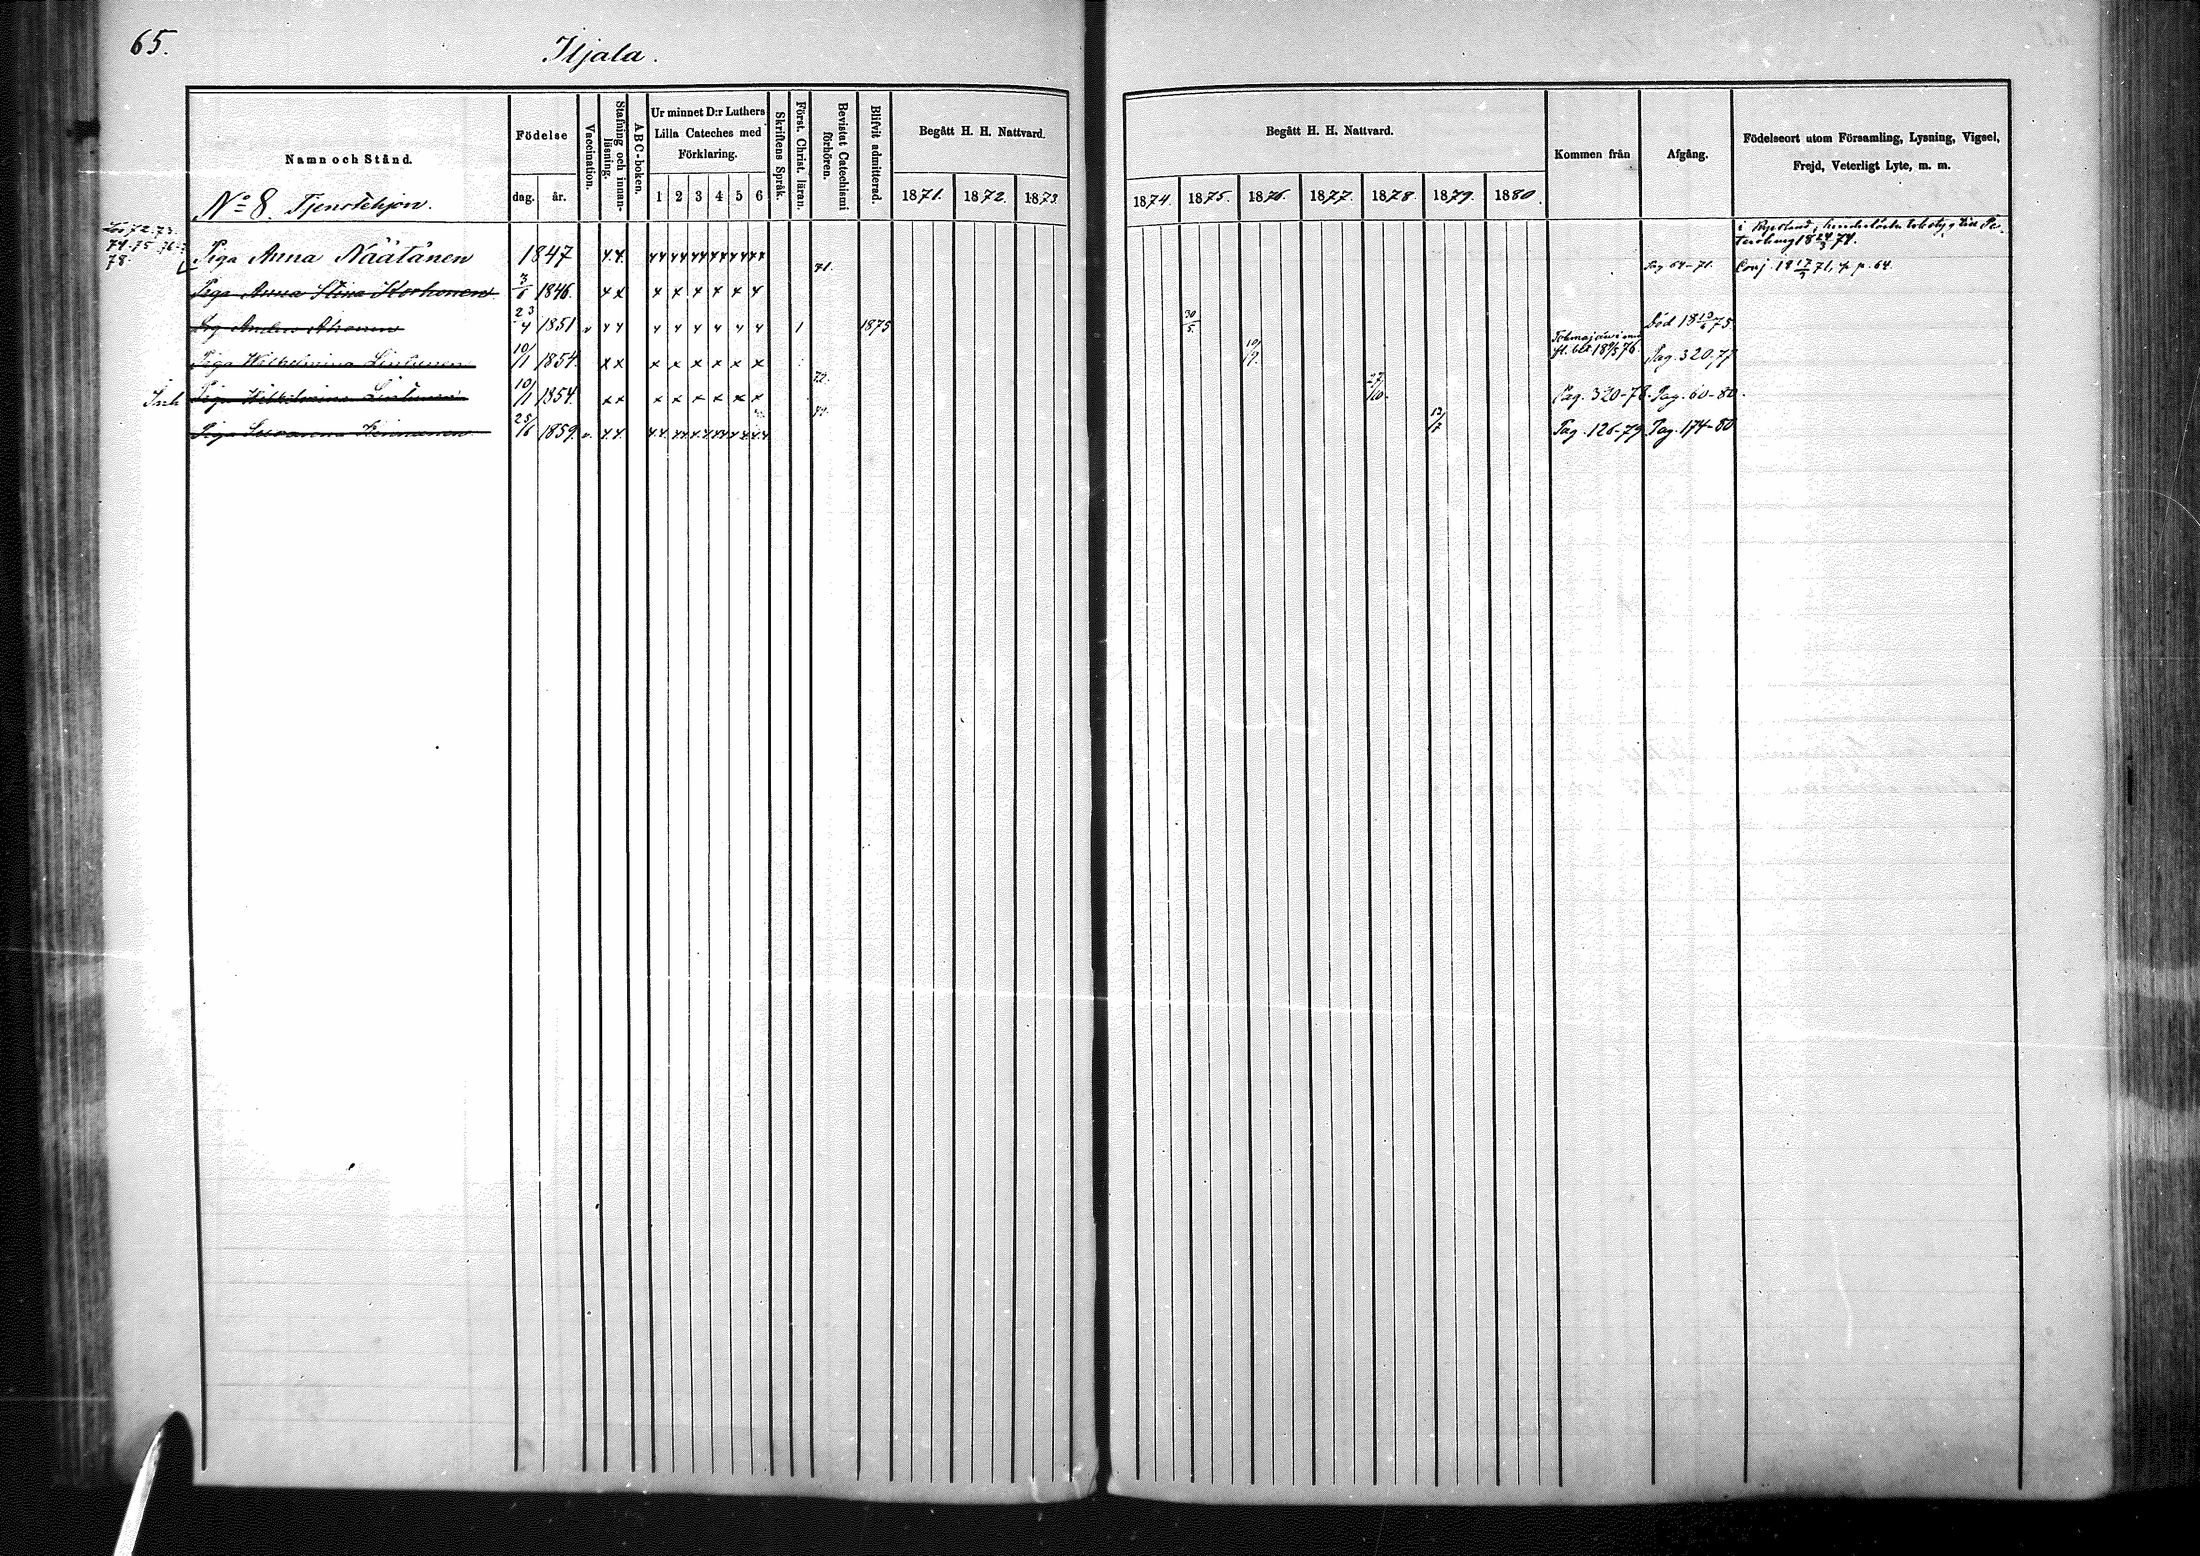 65.
Iljala.
Namn och Stånd.
Födelse
dag. år.
Vaccination.
Stafning och innanläsning.
ABC-boken.
Ur minnet D:r Luthers
Lilla Cateches med
Förklaring.
1 2 3 4 5 6
Skriftens Språk.
Först. Christ. läran.
Bevistat Catechismi förhören.
Blifvit admitterad.
Begått H. H. Nattvard.
1871. 1872. 1873
Begått H. H. Nattvard.
1874. 1875. 1876. 1877. 1878. 1879. 1880.
Kommen från
Afgång.
Födelseort utom Församling, Lysning, Vigsel,
Frejd, Veterligt Lyte, m. m.
No 8. Tjenstehjon.
72. 73.
74. 75. 76.
78.
Piga Anna Näätänen 1847
i Ryssland,
tersburg 18 24/3 74.
Piga Anna Stina Korhonen 3/6 1846. x x x x x x x x 71. Pag 64-71. Conj. 18 17/9 71, p. 64.
Drg Anders Ahonen 23/4 1851 v 1 1875 30/5. Död 18 13/6 75
Piga Wilhelmina Lintunen 10/1 1854. x x x x x x x x 10/9. Tohmajärvi 76. Pag. 320, 77
Inh Piga Wilhelmina Lintunen 10/1 1854 x x x x x x x x 72. 27/10. Pag. 320-78. Pag. 60-80.
Piga Susanna Keinänen 25/6 1859. v. 79. 13/7 Pag. 126-79 Pag. 174-80